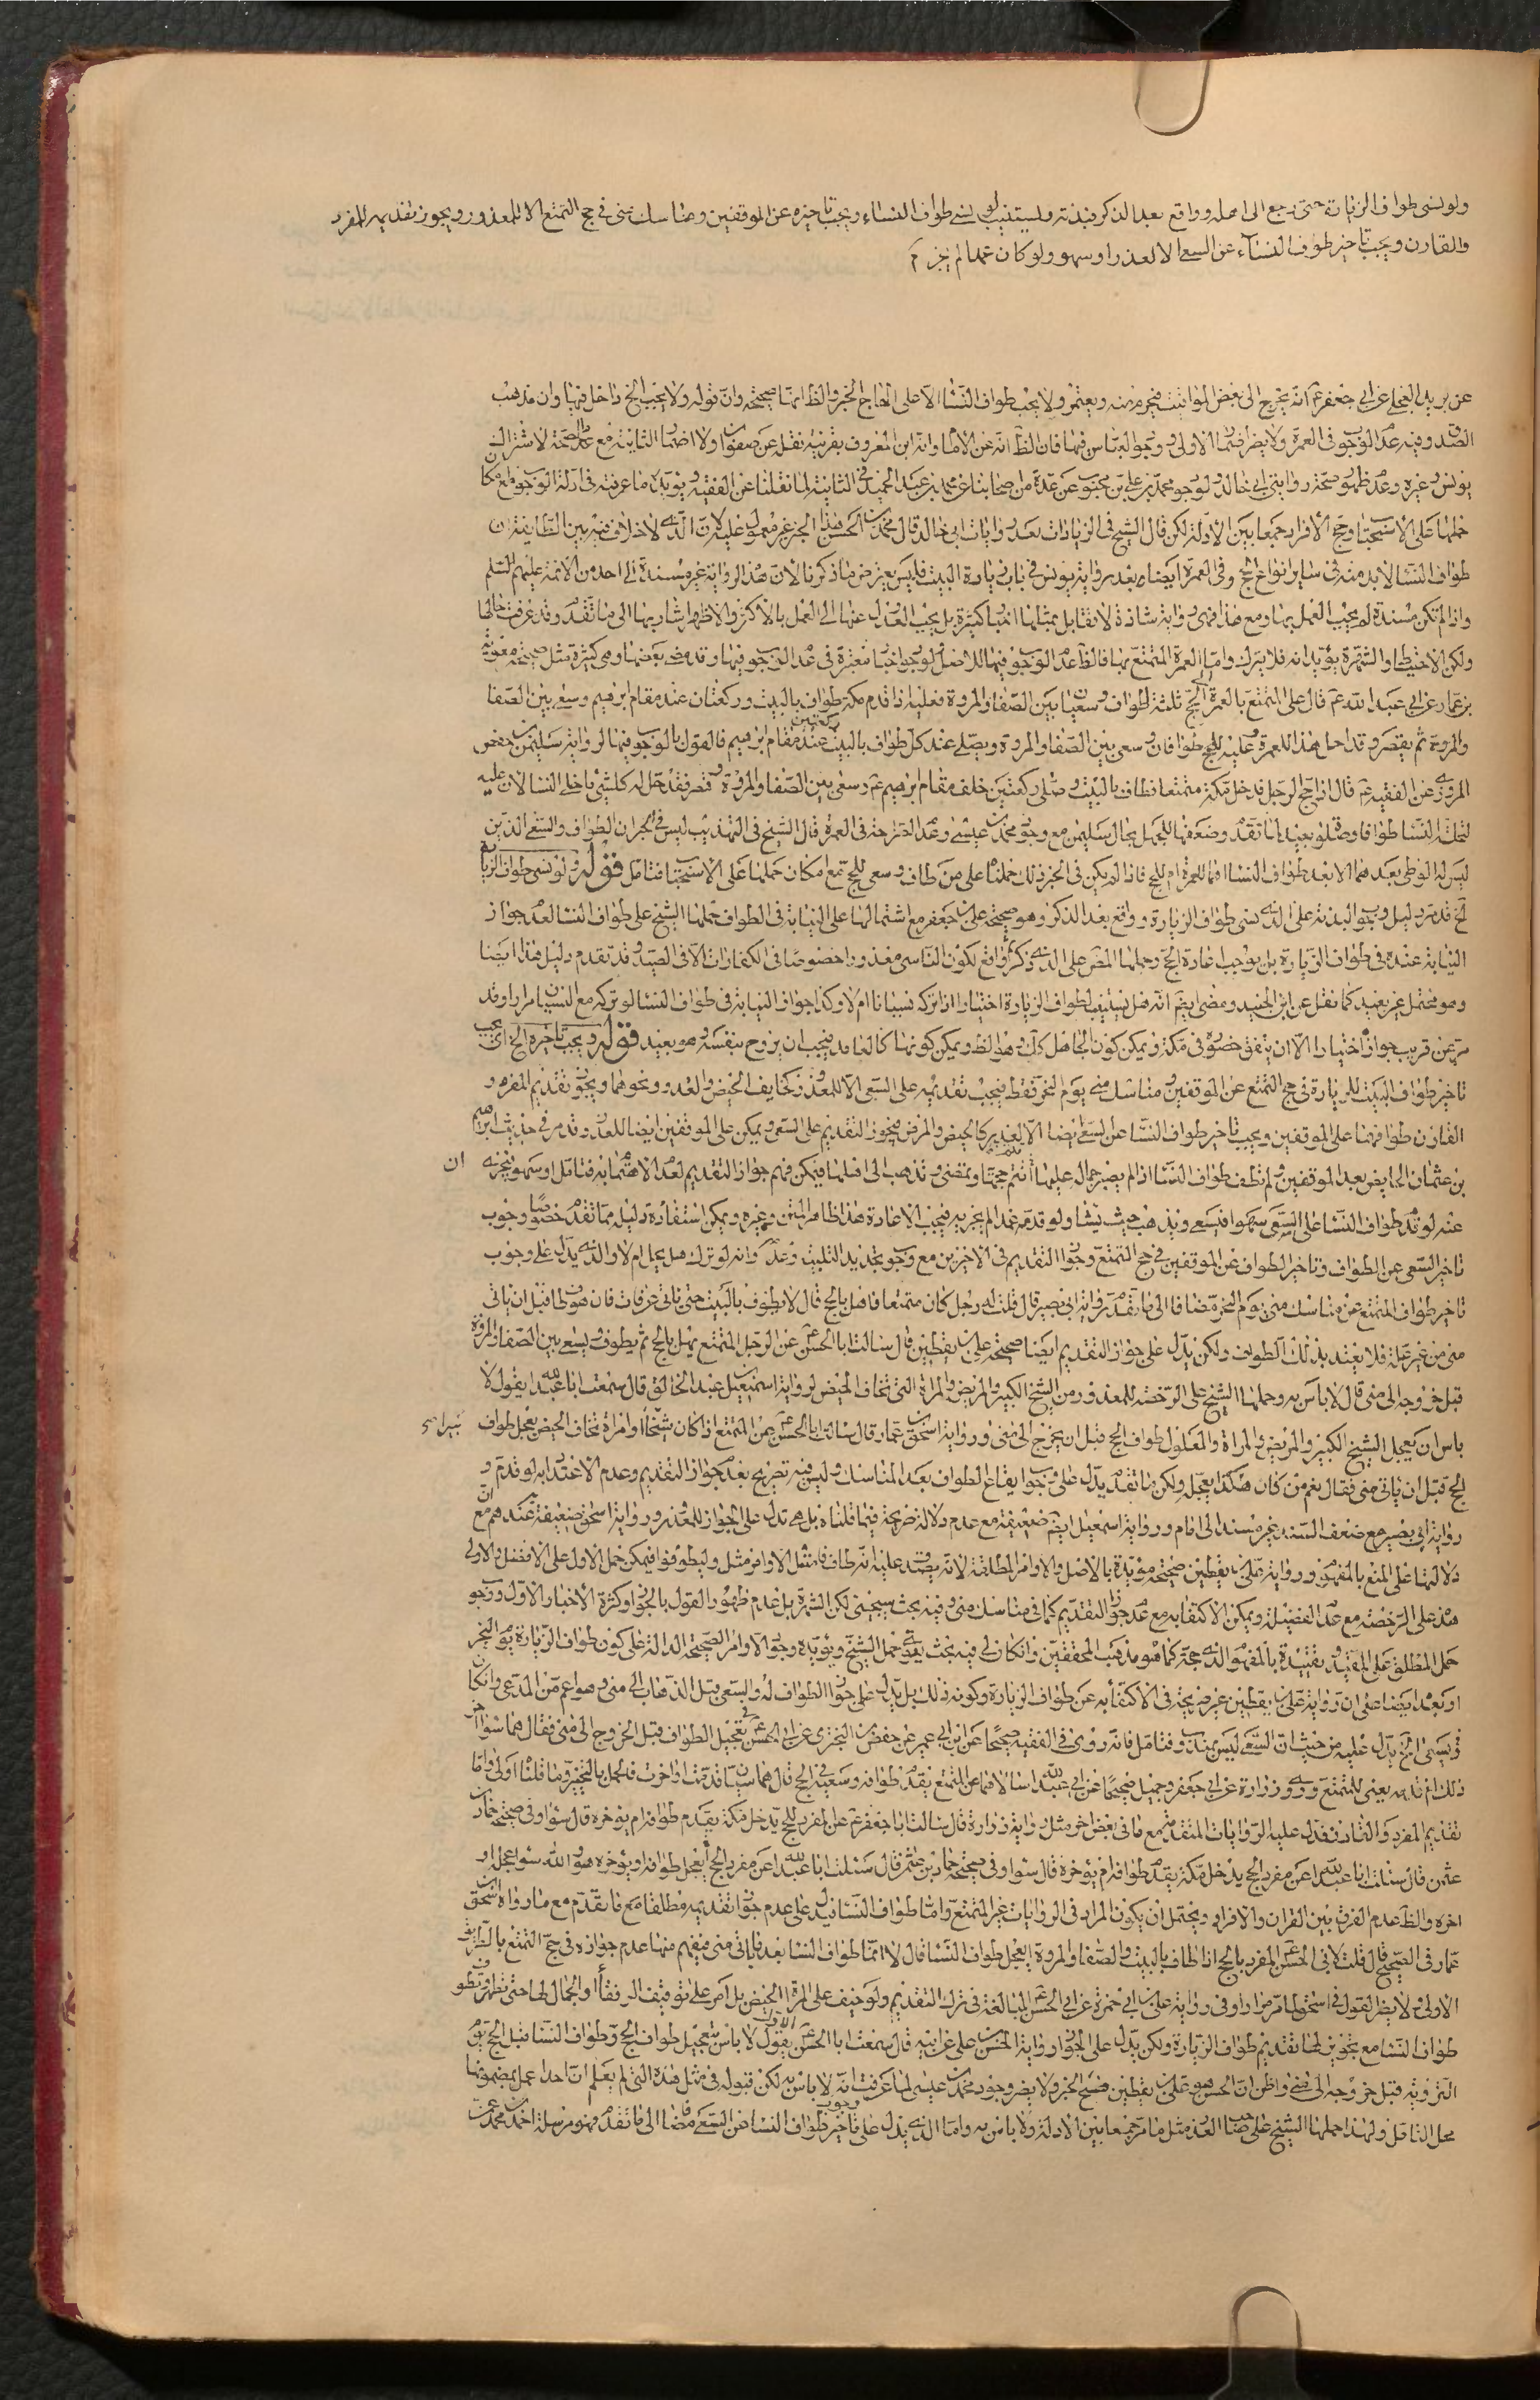 ولو نسى طواف الزيارة حتى رجع الى اهله وواقع بعد الذكر فبدنة ويستنيب لو نسى طواف النساء ويجب تاخيره عن الموقفين ومناسك منى فى حج التمتع الا للمعذور ويجوز تقديمه للمفرد
والقارن ويجب تاخير طواف النساء عن السعى الا لعذر او سهو ولو كان عمدا لم يجز
عن بريد العجلى عن ابى جعفر ع انه يخرج الى بعض المواقيت فيحرم منه ويعتمر ولا يجب طواف النساء الا على الحاج الخبر والظ انها صحيحة وان قوله ولا يجب الخ داخل فيها وان مذهب
الصدوق فيه عدم الوجوب فى العمرة ولا يضر اضمار الاولى ووجود العباس فيها فان الظ انه عن الامام وانه ابن المعروف بقرينة نقل عن صفوان ولا اضمار الثانية مع عدم صحة لاشتراك
يونس وغيره وعدم ظهور صحة رواية ابى خالد لوجود محمد بن على بن محبوب عن عدة من اصحابنا عن محمد بن عبد الحميد فى الثانية لما نقلنا عن الفقيه ويؤيده ما عرفته فى ادلة الوجوب مع امكان
حملها على الاستحباب وحج الافراد جمعا بين الادلة لكن قال الشيخ فى الزيادات بعد روايات ابى خالد قال محمد بن الحسن هذا الخبر غير معمول عليه لان الذى لا خلاف فيه بين الطائفة ان
طواف النساء لا بد منه فى ساير انواع الحج وفى العمرة ايضا وبعد رواية يونس فى باب زيارة البيت فليس بمعترض ما ذكرناه لان هذه الرواية غير مسندة الى احد من الائمة عليهم السلم
واذا لم تكن مسندة لم يجب العمل بها ومع هذا فهى رواية شاذة لا تقابل بمثلها اخبار كثيرة بل يجب العدول عنها الى العمل بالاكثر والاظهر اشار بها الى ما تقدم وقد عرفت حالها
ولكن الاحتياط والشهرة يؤيد انه فلا يترك واما العمرة المتمتع بها فالظ عدم الوجوب فيها للاصل ولوجود اخبار معتبرة فى عدم الوجوب فيها وقد مضى بعضها وهى كثيرة مثل صحيحة معوية
بن عمار عن ابى عبد الله ع قال على المتمتع بالعمرة الى الحج ثلثة اطواف وسعيان بين الصفا والمروة فعليه اذا قدم مكة طواف بالبيت وركعتان عند مقام ابرهيم وسعى بين الصفا
والمروة ثم يقصر وقد احل هذا للعمرة وعليه للحج طوافان وسعى بين الصفا والمروة ويصلى عند كل طواف بالبيت ركعتين عند مقام ابرهيم فالقول بالوجوب فيها لرواية سليمن بن حفص
المروزى عن الفقيه ع قال اذا حج الرجل فدخل مكة متمتعا فطاف بالبيت وصلى ركعتين خلف مقام ابرهيم ع وسعى بين الصفا والمروة وقصر فقد حل له كل شئ ما خلا النساء لان عليه
لتحلة النساء طوافا وصلوة بعيد لما تقدم وضعفها للجهل بحال سليمن مع وجود محمد بن عيسى وعدم الصراحة فى العمرة قال الشيخ فى التهذيب ليس فى الخبر ان الطواف والسعى الذين
ليس له الوطى بعدهما الا بعد طواف النساء انما للعمرة ام للحج فاذا لم يكن فى الخبر ذلك حملناه على من طاف وسعى للحج مع امكان حملها على الاستحباب فتامل قوله ولو نسى طواف الزيارة
الخ قد مر دليل وجوب البدنة على الذى نسى طواف الزيارة وواقع بعد الذكر وهو صحيحة على بن جعفر مع اشتمالها على النيابة فى الطواف حملها الشيخ على طواف النساء لعدم جواز
النيابة عنده فى طواف الزيارة بل يوجب اعادة الحج وحملها المص على الذى ذكر فواقع لكون الناسى معذورا خصوصا فى الكفارات الا فى الصيد وقد تقدم دليل هذا ايضا
وهو محتمل غير بعيد كما نقل عن ابن الجنيد ومضى ايضا انه هل يستنيب لطواف الزيارة اختيارا اذا تركه نسيانا ام لا وكذا جواز النيابة فى طواف النساء لو تركه مع النسيان مرارا وقد
مر عن قريب جوازه اختيارا الا ان يتفق حضوره فى مكة ويمكن كون الجاهل كذلك وهو الظ ويمكن كونها كالعامد فيجب ان يروح بنفسه وهو بعيد قوله ويجب تاخيره الخ اى يجب
تاخير طواف البيت للزيارة فى حج التمتع عن الموقفين ومناسك منى يوم النحر فقط فيجب تقديمه على السعى الا للمعذور كخايف الحيض والعدو ونحوهما ويجوز تقديم المفرد و
القارن طوافهما على الموقفين ويجب تاخير طواف النساء عن السعى ايضا الا لعذر كالحيض والمرض فيجوز التقديم على السعى ويمكن على الموقفين ايضا للعذر وقد مر فى حديث ابرهيم
بن عثمان الحايض بعد الموقفين ولم تطف طواف النساء اذا لم يصبر جمالها عليها انتم حجها وتمضى وتذهب الى اهلها فيمكن فهم جواز التقديم لعدم الاهتمام به فتامل او سهو فيجزيه ان
عنه لو قدم طواف النساء على السعى سهوا فيسعى ويذهب حيث يشاء ولو قدمه عمدا لم يجزيه فيجب الاعادة هذا ظاهر المتن وغيره ويمكن استفادة دليله مما تقدم خصوصا وجوب
تاخير السعى عن الطواف وتاخير الطواف عن الموقفين فى حج التمتع وجواز التقديم فى الاخرين مع وجوب تجديد التلبية وعدمه وانه لو ترك هل يحل ام لا والذى يدل على وجوب
تاخير طواف المتمتع عن مناسك منى يوم النحر مضافا الى ما تقدم رواية ابى بصير قال قلت له رجل كان متمتعا فاهل بالحج قال لا يطوف بالبيت حتى ياتى عرفات فان هو طاف قبل ان ياتى
منى من غير علة فلا يعتد بذلك الطواف ولكن يدل على جواز التقديم ايضا صحيحة على بن يقطين قال سالت ابا الحسن ع عن الرجل المتمتع يهل بالحج ثم يطوف ويسعى بين الصفا والمروة
قبل خروجه الى منى قال لا باس به وحملها الشيخ على الرخصة للمعذور من الشيخ الكبير والمريض والمراة التى تخاف الحيض لرواية اسمعيل بن عبد الخالق قال سمعت ابا عبد الله يقول لا
باس ان يعجل الشيخ الكبير والمريض والمراة والمعلول طواف الحج قبل ان يخرج الى منى ورواية اسحق بن عمار قال سالت ابا الحسن ع عن المتمتع اذا كان شيخا او امراة تخاف الحيض يعجل طواف
الحج قبل ان ياتى منى فقال نعم من كان هكذا يعجل ولكن ما تقدم يدل على وجوب ايقاع الطواف بعد المناسك وليس فيه تصريح بعدم جواز التقديم وعدم الاعتداد به لو قدم و
رواية ابى بصير مع ضعف السند غير مسند الى امام ورواية اسمعيل ايضا ضعيفة مع عدم دلالة صريحة فيما قلناه بل هى تدل على الجواز للمعذور ورواية اسحق ضعيفة عندهم مع ان
دلالتها على المنع بالمفهوم ورواية على بن يقطين صحيحة مؤيدة بالاصل والاوامر المطلقة لانه يصدق عليه انه طاف فامتثل الاوامر مثل وليطوفوا فيمكن حمل الاول على الافضل والاولى
هذه على الرخصة مع عدم الفضيلة ويمكن الاكتفا به مع عدم جواز التقديم كما فى مناسك منى وفيه بحث سيجئ لكن الشهرة بل عدم ظهور القول بالجواز وكثرة الاخبار الاول ووجوب
حمل المطلق على المقيد وتقييده بالمفهوم الذى حجة كما هو مذهب المحققين وان كان لى فيه بحث يقوى حمل الشيخ ويؤيده وجود الاوامر الصحيحة الدالة على كون طواف الزيارة يوم النحر
او بعد ايضا على ان رواية على بن يقطين غير صريحة فى الاكتفاء به عن طواف الزيارة وكونه ذلك بل يدل على جواز الطواف له والسعى قبل الذهاب الى منى وهو اعم من المدعى وان كان
ويسعى الخ يدل عليه من حيث ان السعى ليس بمندوب فتامل فانه روى فى الفقيه صحيحا عن ابن ابى عمير عن حفص بن البخترى عن ابى الحسن ع فى تعجيل الطواف قبل الخروج الى منى فقال هما سواء اخر
ذلك او قدمه يعنى للمتمتع وروى زرارة عن ابى جعفر وجميل صحيحا عن ابى عبد الله انهما سالاهما عن المتمتع يقدم طوافه وسعيه فى الحج قال هما سيان قدمت او اخرت فالحمل بالتخيير وما قلناه اولى واما
تقديم المفرد والقارن فقد دل عليه الروايات المتقدمة مع ما فى بعض اخر مثل رواية زرارة قال سالت ابا جعفر ع عن المفرد للحج يدخل مكة يقدم طوافه ام يؤخره قال سواء وفى صحيحة حماد بن
عثمن قال سئلت ابا عبد الله ع عن مفرد الحج يدخل مكة يقدم طوافه ام يؤخره قال سواء وفى صحيحة حماد بن عثمن قال سئلت ابا عبد الله ع عن مفرد الحج ايعجل طوافه او يؤخره هو والله سواء عجله او
اخره والظ عدم الفرق بين القران والافراد ويحتمل ان يكون المراد فى الروايات غير المتمتع واما طواف النساء فيدل على عدم جواز تقديمه مطلقا مع ما تقدم مع ما رواه اسحق بن
عمار فى الصحيح قال قلت لابى الحسن ع المفرد بالحج اذا طاف بالبيت والصفا والمروة ايعجل طواف النساء قال لا انما طواف النساء بعد ما ياتى منى فيفهم منها عدم جوازه فى حج التمتع بالطريق
الاولى ولا يضر القول فى اسحق لما مر مرارا وفى رواية على بن ابى حمزة عن ابى الحسن ع المبالغة فى ترك التقديم ولو خيف على المراة الحيض بل امر على توقيف الرفقاء والجمال لها حتى تطهر وتطوف
طواف النساء مع تجويز لها تقديم طواف الزيارة ولكن يدل على الجواز رواية الحسن بن على عن ابيه قال سمعت ابا الحسن الاول ع يقول لا باس بتعجيل طواف الحج وطواف النساء قبل الحج يوم
التروية قبل خروجه الى منى واظن ان الحسن هو على بن يقطين فيصح الخبر ولا يضر وجود محمد بن عيسى لما عرفت انه لا باس به لكن قبوله فى مثل هذه التى لم يعلم ان احدا عمل بمضمونها
محل التامل ولهذا حملها الشيخ على صاحب العذر مثل ما مر جمعا بين الادلة ولا باس به واما الذى يدل على وجوب تاخير طواف النساء عن السعى مضافا الى ما تقدم فهو مرسلة احمد بن محمد عمن